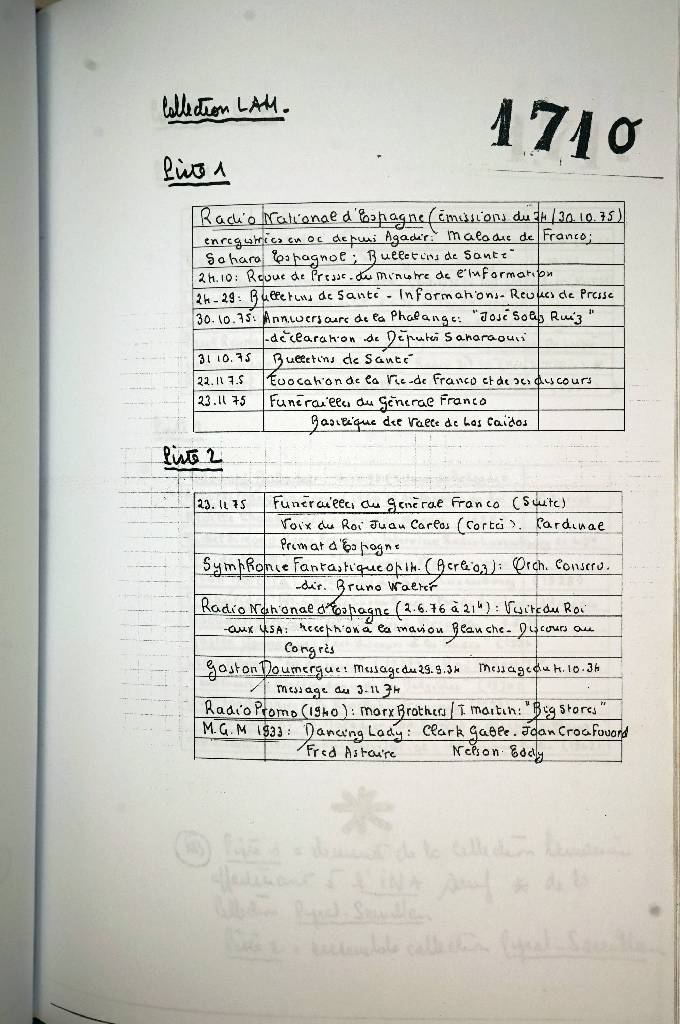 Collection LAM.
1710
Piste 1
Radio National d'Espagne (Émissions du 24/30.10.75)
enregistrées en OC depuis Agadir: Maladie de Franco;
Sahara Espagnol; Bulletins de Santé
24.10: Revue de Presse du Ministre de l'Information
24-29: Bulletins de Santé - Informations - Revues de Presse
30.10.75: Anniversaire de la Phalange: "José Solis Ruiz"
-déclaration de Députés Saharaoui
31 10.75 Bulletins de Santé
22.11 7.5 Évocation de la Vie de Franco et de ses discours
23.11 75 Funérailles du Général Franco
Basilique del Valle de Los Caidos
Piste 2
23.11 75 Funérailles du Général Franco (Suite)
Voix du Roi Juan Carlos (Cortès). Cardinal
Primat d'Espagne
Symphonie Fantastique op 14. (Berlioz): Orch. Conserv.
-dir. Bruno Walter
Radio National d'Espagne (2.6.76 à 21h): Visite du Roi
-aux USA: réception à la maison Blanche - Discours au
Congrès
Gaston Doumergue: Message du 29.9.34 Message du 4.10.34
Message du 3-11 34
Radio Promo (1940): Marx Brothers / T. Martin: "Big Stores"
M.G.M 1933: Dancing Lady: Clark Gable. Joan Croafword
Fred Astaire Nelson Eddy
Piste 1 = de la Collection
à l'INA de la
Collection
Piste 2 = collection